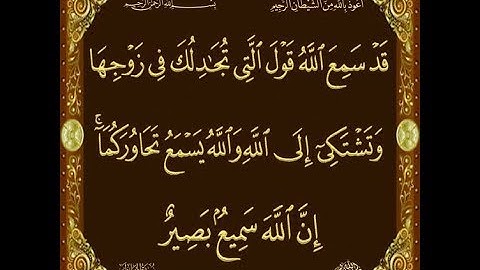 أعوذ بالله من الشيطان الرجيم
بسم الله الرحمن الرحيم
قَدْ سَمِعَ ٱللَّهُ قَوْلَ ٱلَّتِي تُجَٰدِلُكَ فِي زَوْجِهَا
وَتَشْتَكِيٓ إِلَى ٱللَّهِ وَٱللَّهُ يَسْمَعُ تَحَاوُرَكُمَآۚ
إِنَّ ٱللَّهَ سَمِيعٌۢ بَصِيرٌ